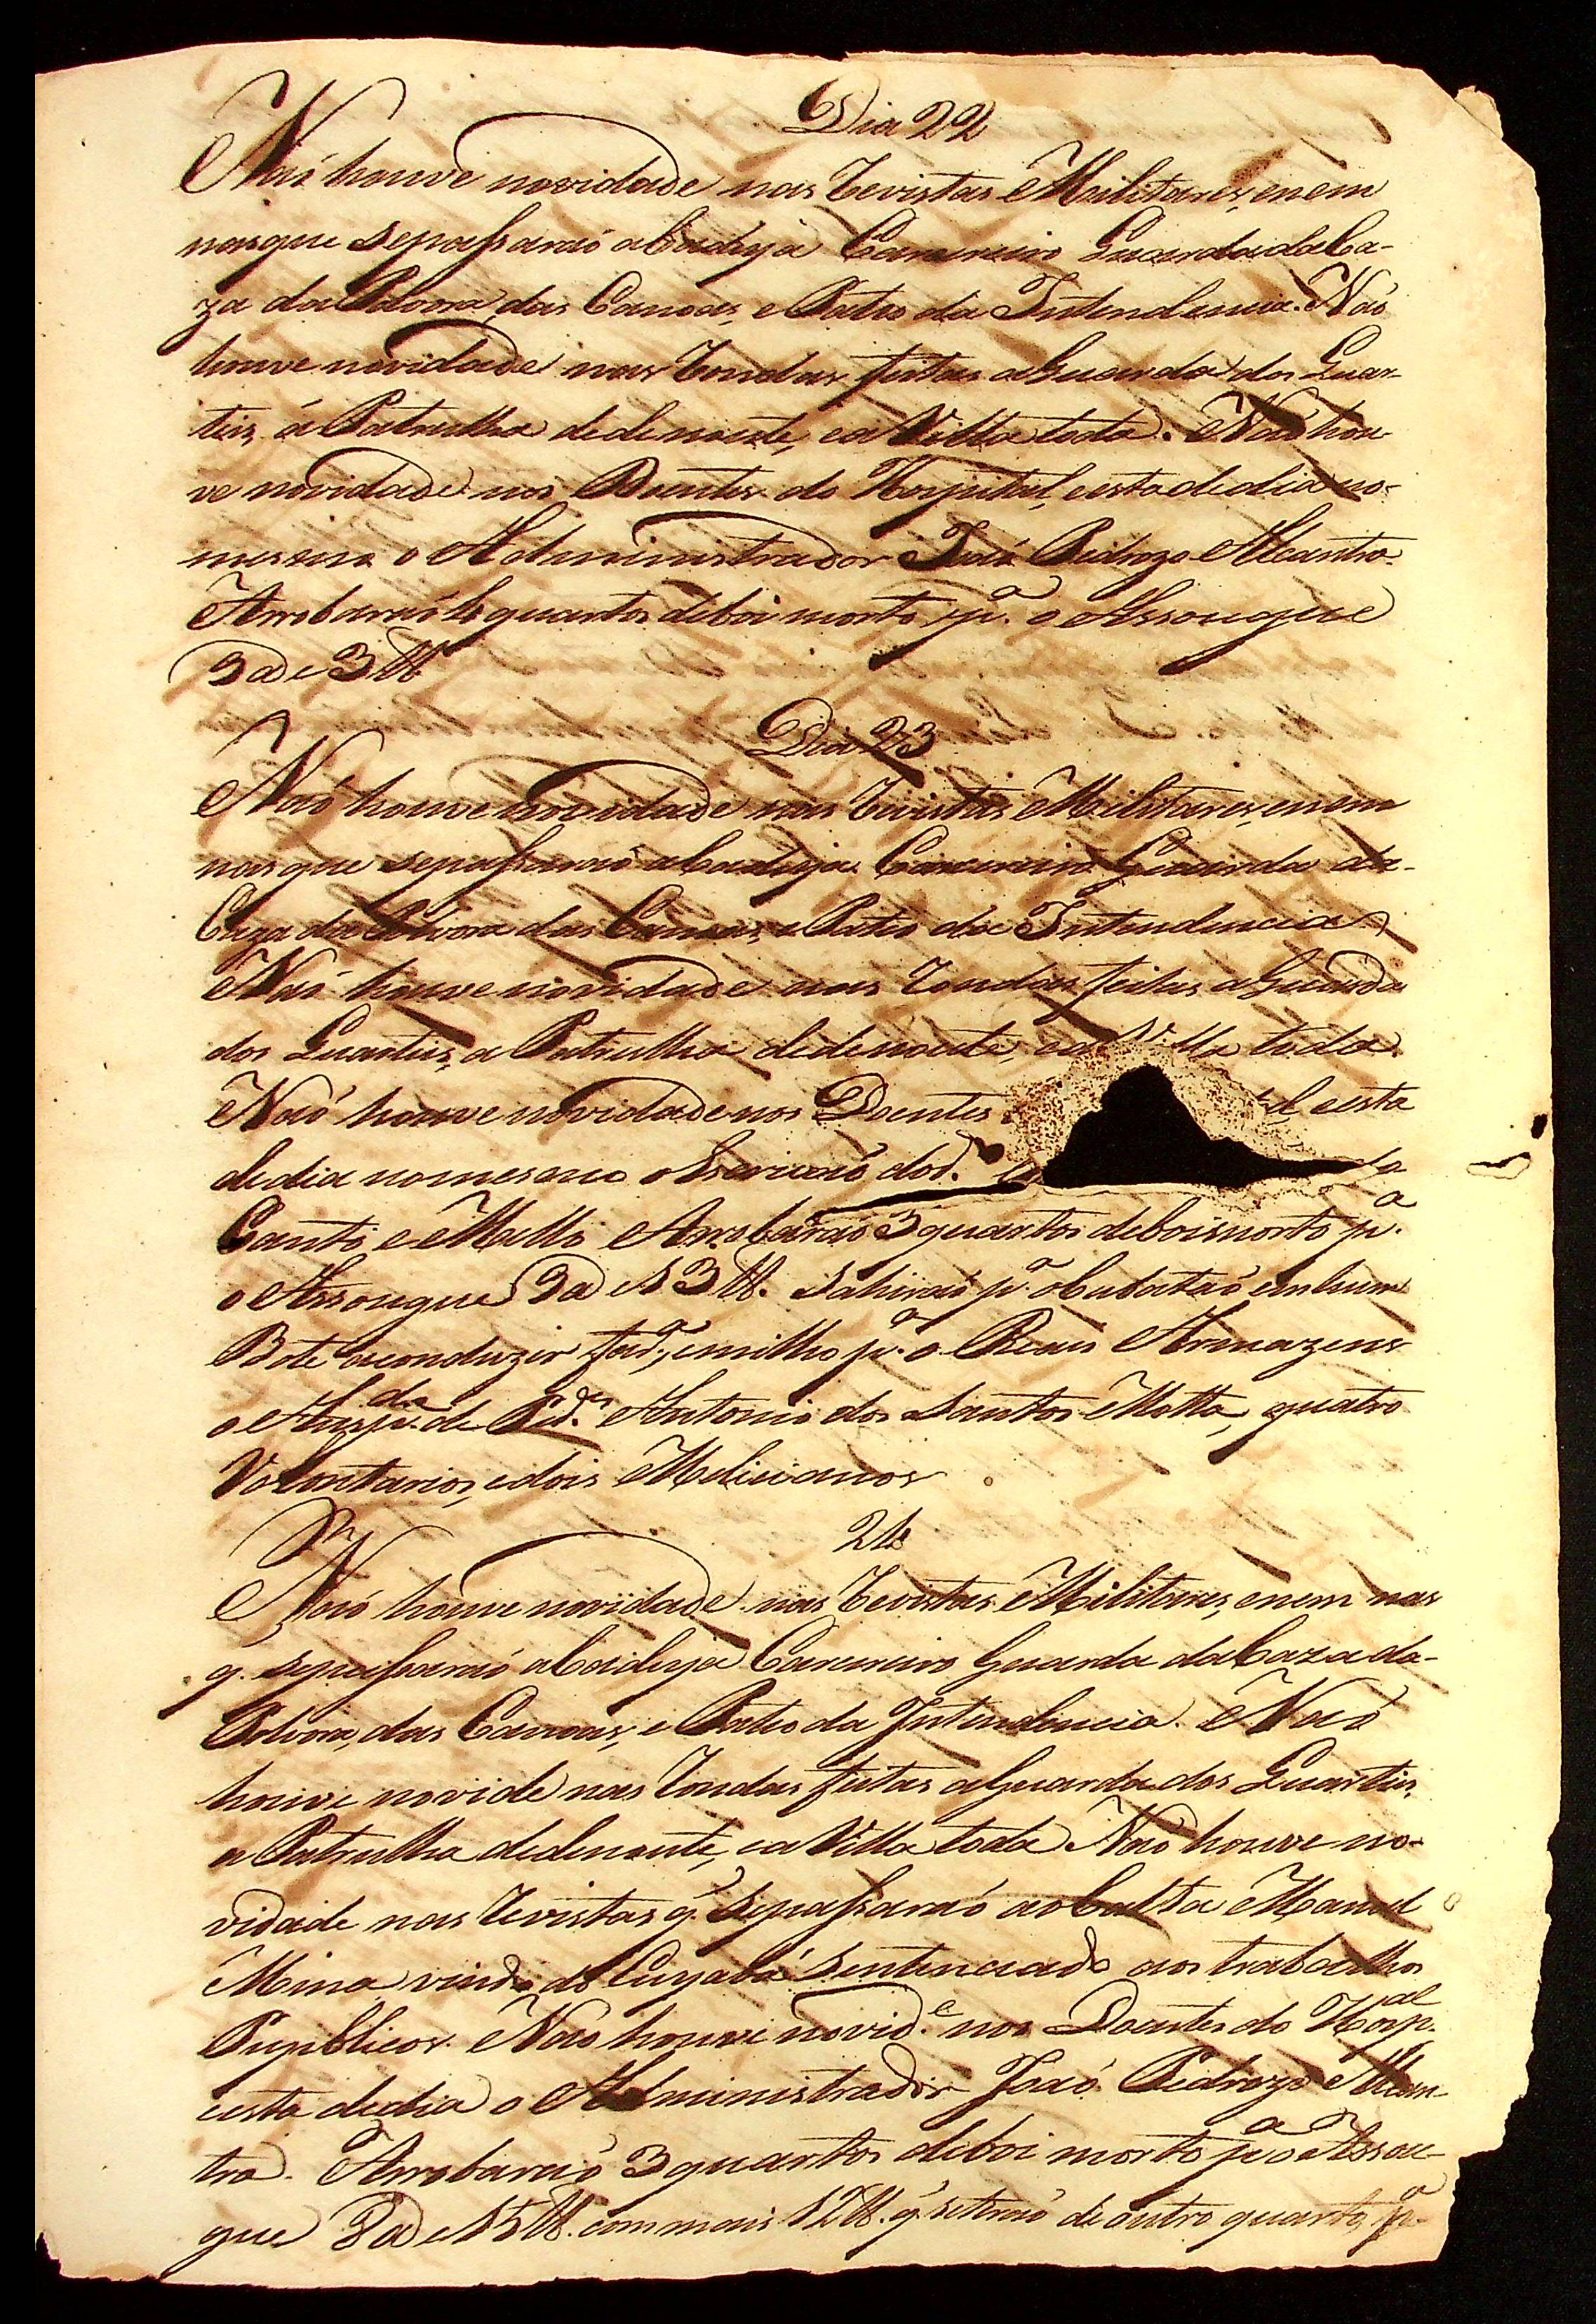 Dia 22
Naõ houve novidade nas Revistas Militares, enem
nasque sepassaraõ aCadeya Carcereiro Guarda daCa-
za da Polvora das Canoas, e Patio da Intendencia. Naõ
houve novidade nas Rondas feitas aGuarda dos Quar-
teis, á Patrulha dedenoute, ea Villa toda. Naõ hou-
ve novidade nos Doentes do Hospital, eesta dedia no-
mesmo o Administrador Joaõ Pedrozo Alcantra.
Arrobaraõ 4 quartos deboi morto p.ª o Assougue
9 @ e 3 lb
Dia 23
Naõ houve novidade nas Revistas Militares, enem
nasque sepassaraõ aCadeya Carcereiro Guarda da-
Caza da Polvora das Canoas, e Patio da Intendencia
Naõ houve novidade nas Rondas feitas aGuarda
dos Quarteis, a Patrulha dedenoute, ea Villa toda.
Naõ houve novidade nos Doentes el, eesta
dedia nomesmo oEscrivaõ dod.º
Canto e Mello Arrobaraõ 3 quartos deboi morto p.ª
o Assougue 9 @ e 13 lb. Sahiraõ p.ª oCubataõ em hum
Bote aconduzir fad.ª, emilho p.ª o Reais Armazens
o Ansp.da de Ped.es Antonio dos Santos Motta, quatro
Volontarios, edois Melicianos
24
Naõ houve novidade nas Revistas Militares, enem nas
q. sepassaraõ aCadeya Carcereiro Guarda daCaza da-
Polvora, das Canoas, e Patio da Intendencia. Naõ
houve novide nas Rondas feitas aGuarda dos Quarteis,
a Patrulha dedenoute, ea Villa toda Naõ houve no-
vidade nas Revistas q. sepassaraõ aoCalta Manoel
Mina vindo do Cuyabá Sentenciado aos trabalhos
Pupiblicos. Naõ houve novid.e nos Doentes do Hosp.al
eesta dedia o Administrador Joaõ Pedrozo Alcan-
tra. Arrobaraõ 3 quartos deboi morto p.ª o Assou-
gue 8 @ e 15 lb. com mais 12 lb. q. setiraõ de outro quarto, p.ª